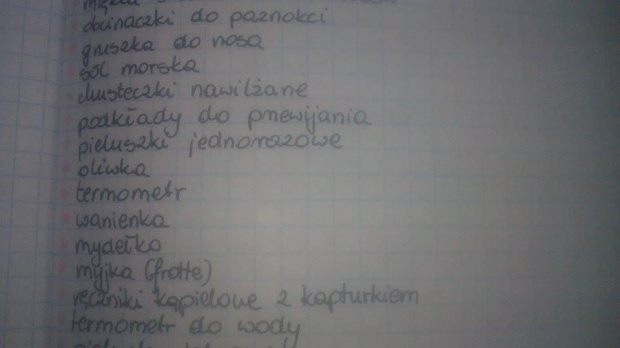 obcinaczki do paznokci
gruszka do nosa
sól morska
chusteczki nawilżane
podkłady do przewijania
pieluszki jednorazowe
oliwka
termometr
wanienka
mydełko
myjka (frotte)
ręczniki kąpielowe z kapturkiem
termometr do wody